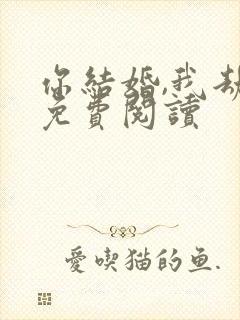 你結婚,我劫
免費閱讀
愛喫猫的鱼.